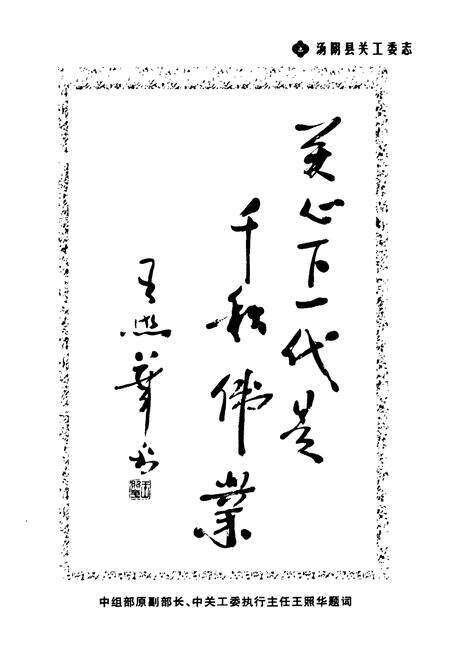 汤阴县关工委志
关心下一代是
千秋伟業
王照华书
中组部原副部长、中关工委执行主任王照华题词